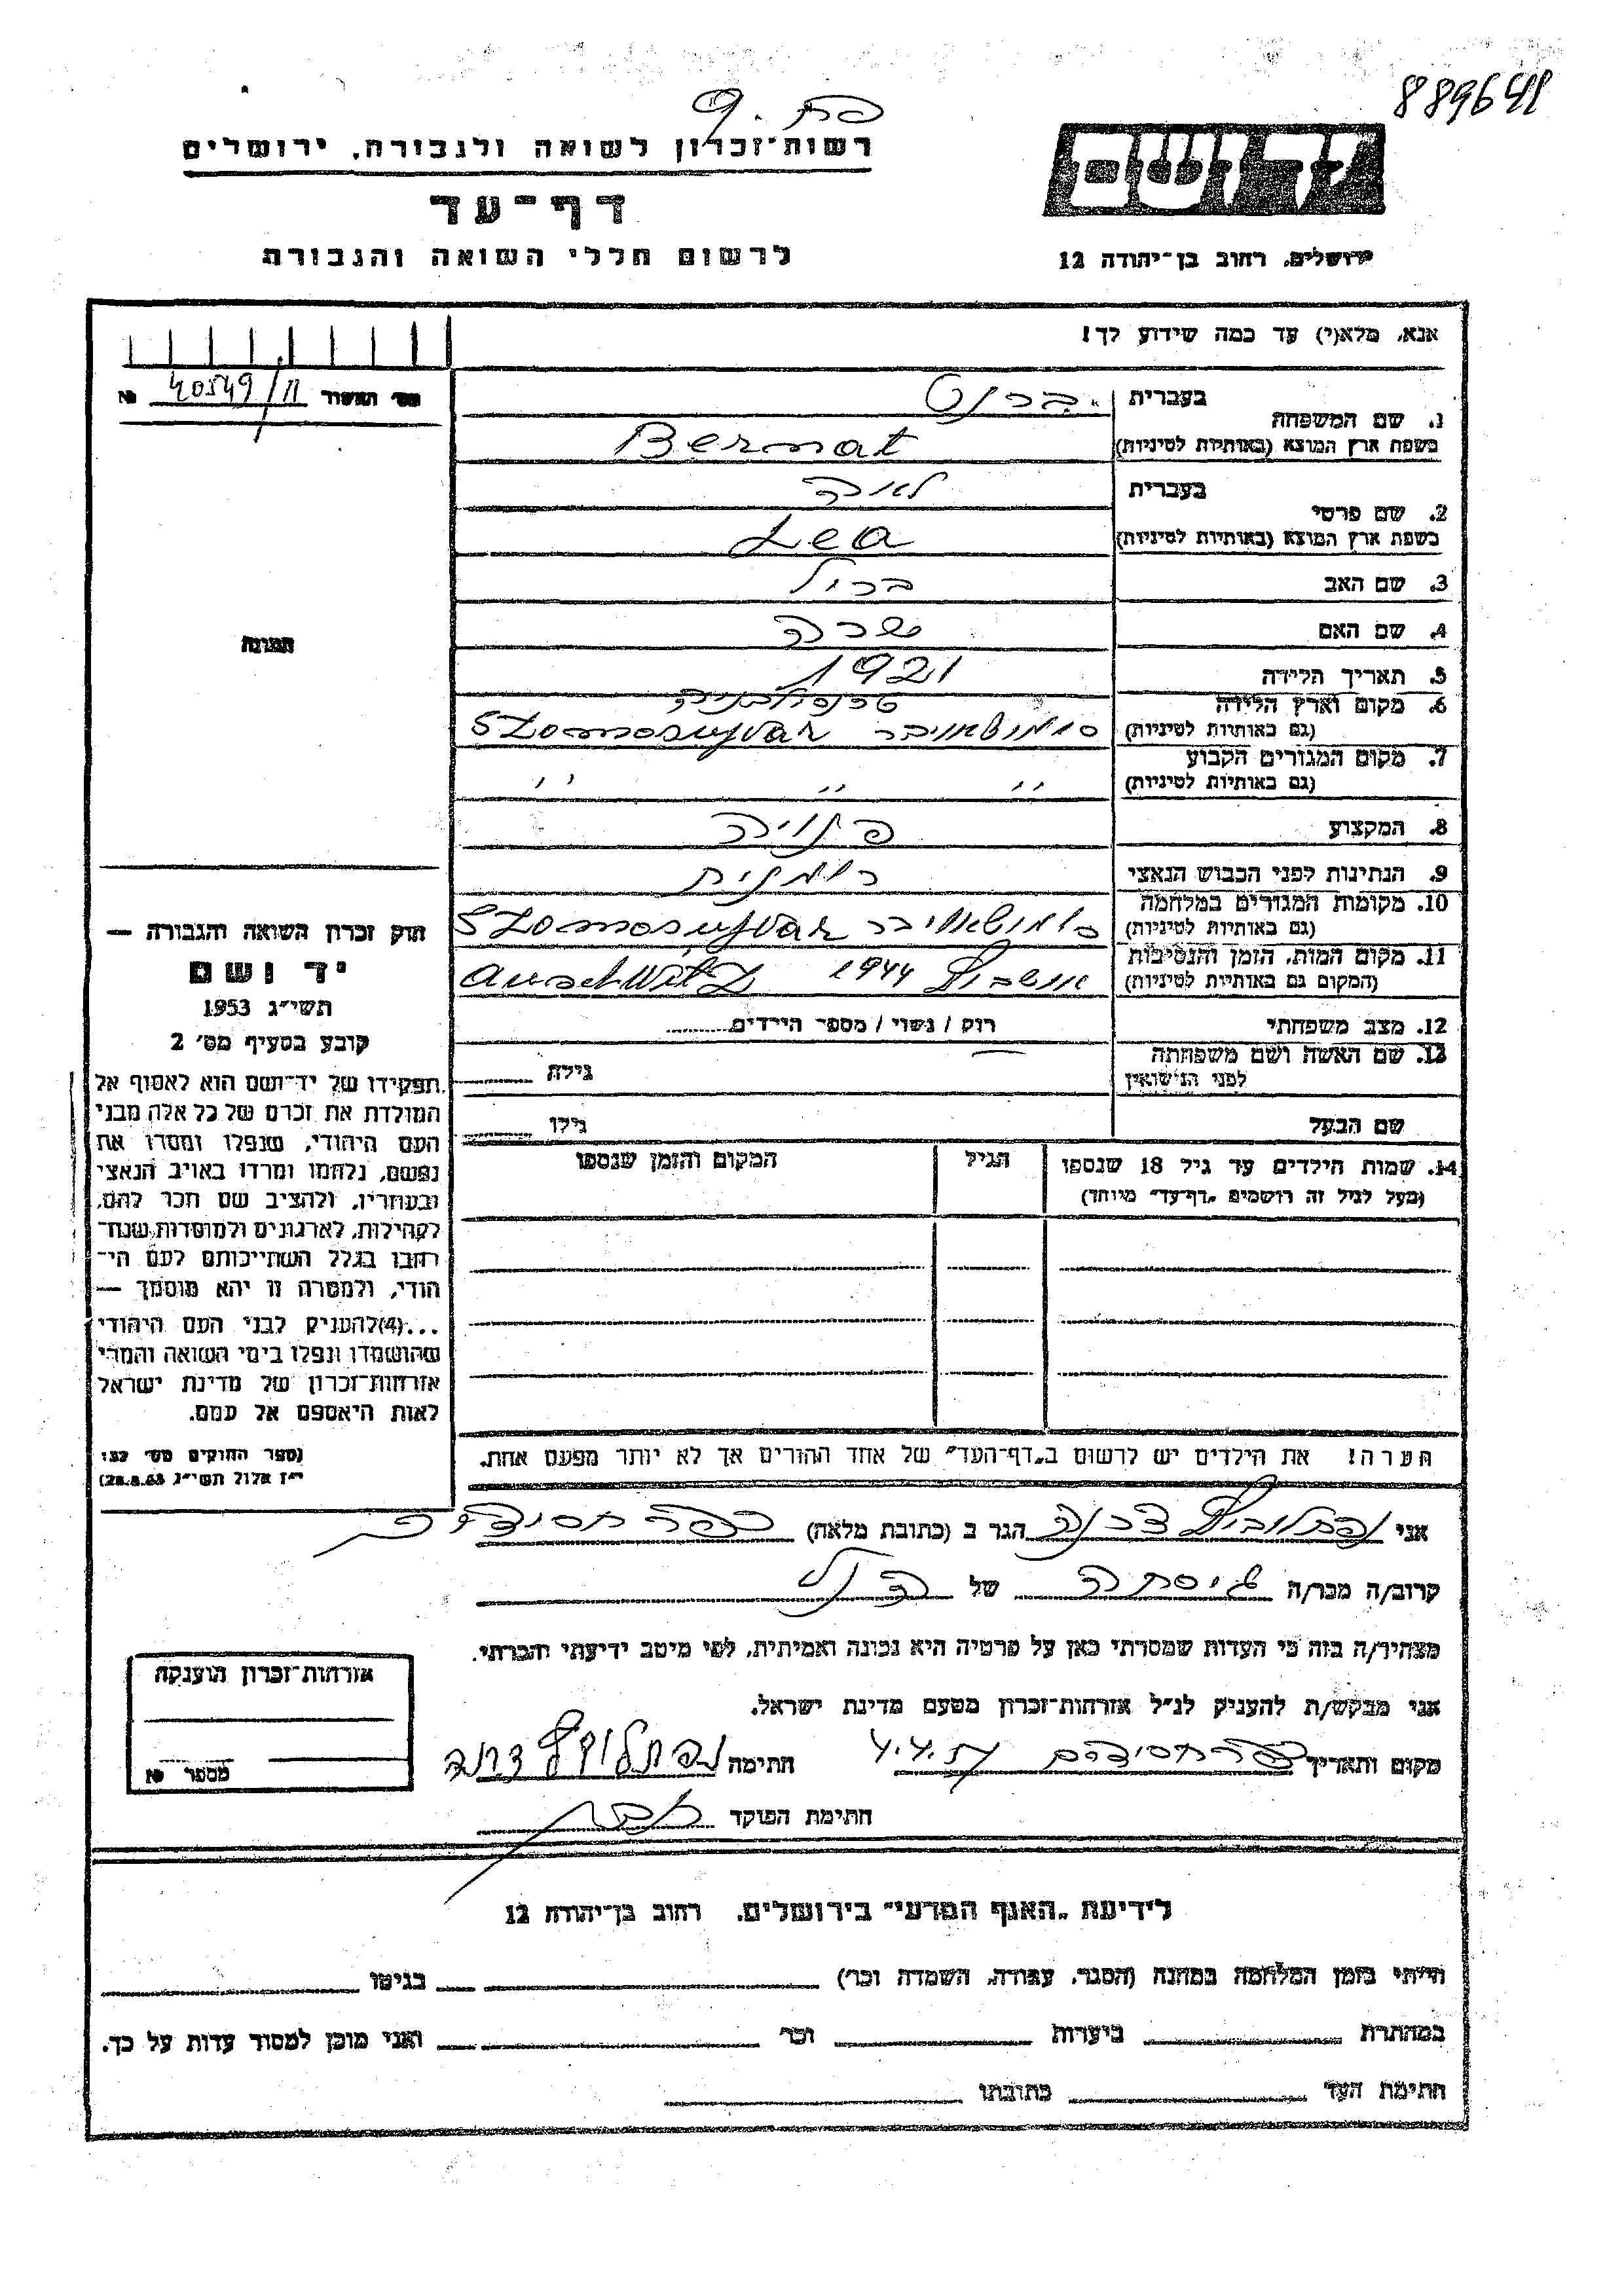 889641
רשות־זכרון לשואה ולגבורה, ירושלים
דף־עד
לרשום חללי השואה והגבורה
יד ושם
ירושלים, רחוב בן־יהודה 12
אנא, מלא(י) עד כמה שידוע לך!
מס' האשור 40549/11 №
1. שם המשפחה
בעברית ברנט
בשפת ארץ המוצא (באותיות לטיניות) Bernat
2. שם פרטי
בעברית לאה
בשפת ארץ המוצא (באותיות לטיניות) Lea
3. שם האב בריל
4. שם האם שרה
5. תאריך הלידה 1921
6. מקום וארץ הלידה טרנסילבניה
(גם באותיות לטיניות) סומושאויבר Szomosujvar
7. מקום המגורים הקבוע
(גם באותיות לטיניות) ,, ,, ,,
8. המקצוע פנויה
9. הנתינות לפני הכבוש הנאצי רומנית
10. מקומות המגורים במלחמה
(גם באותיות לטיניות) סומושאויבר Szomosujvar
11. מקום המות, הזמן והנסיבות
(המקום גם באותיות לטיניות) אושביץ 1944 Auschwitz
12. מצב משפחתי רוק / נשוי / מספר הילדים
13. שם האשה ושם משפחתה
לפני הנישואין גילה
שם הבעל גילו
14. שמות הילדים עד גיל 18 שנספו הגיל המקום והזמן שנספו
(מעל לגיל זה רושמים „דף־עד" מיוחד)
הערה! את הילדים יש לרשום ב„דף־העד" של אחד ההורים אך לא יותר מפעם אחת.
תמונה
חוק זכרון השואה והגבורה —
יד ושם
תשי"ג 1953
קובע בסעיף מס' 2
תפקידו של יד־ושם הוא לאסוף אל
המולדת את זכרם של כל אלה מבני
העם היהודי, שנפלו ומסרו את
נפשם, נלחמו ומרדו באויב הנאצי
ובעוזריו, ולהציב שם וזכר להם,
לקהילות, לארגונים ולמוסדות שנח־
רבו בגלל השתייכותם לעם הי־
הודי, ולמטרה זו יהא מוסמך —
...(4)להעניק לבני העם היהודי
שהושמדו ונפלו בימי השואה והמרי
אזרחות־זכרון של מדינת ישראל
לאות היאספם אל עמם.
(ספר החוקים מס' 132
י"ז אלול תשי"ג 28.8.53)
אני נפתלוביץ דבורה הגר ב (כתובת מלאה) כפר חסידים
קרוב/ה מכר/ה גיסתה של הנ"ל
מצהיר/ה בזה כי העדות שמסרתי כאן על פרטיה היא נכונה ואמיתית, לפי מיטב ידיעתי והכרתי.
אני מבקש/ת להעניק לנ"ל אזרחות־זכרון מטעם מדינת ישראל.
מקום ותאריך כפר חסידים חתימה
חתימת הפוקד
אזרחות־זכרון הוענקה
מספר №
לידיעת „האגף המדעי" בירושלים, רחוב בן־יהודה 12
הייתי בזמן המלחמה במחנה (הסגר, עבודה, השמדה וכו') בגיטו
במחתרת ביערות וכו' ואני מוכן למסור עדות על כך.
חתימת העד כתובתו